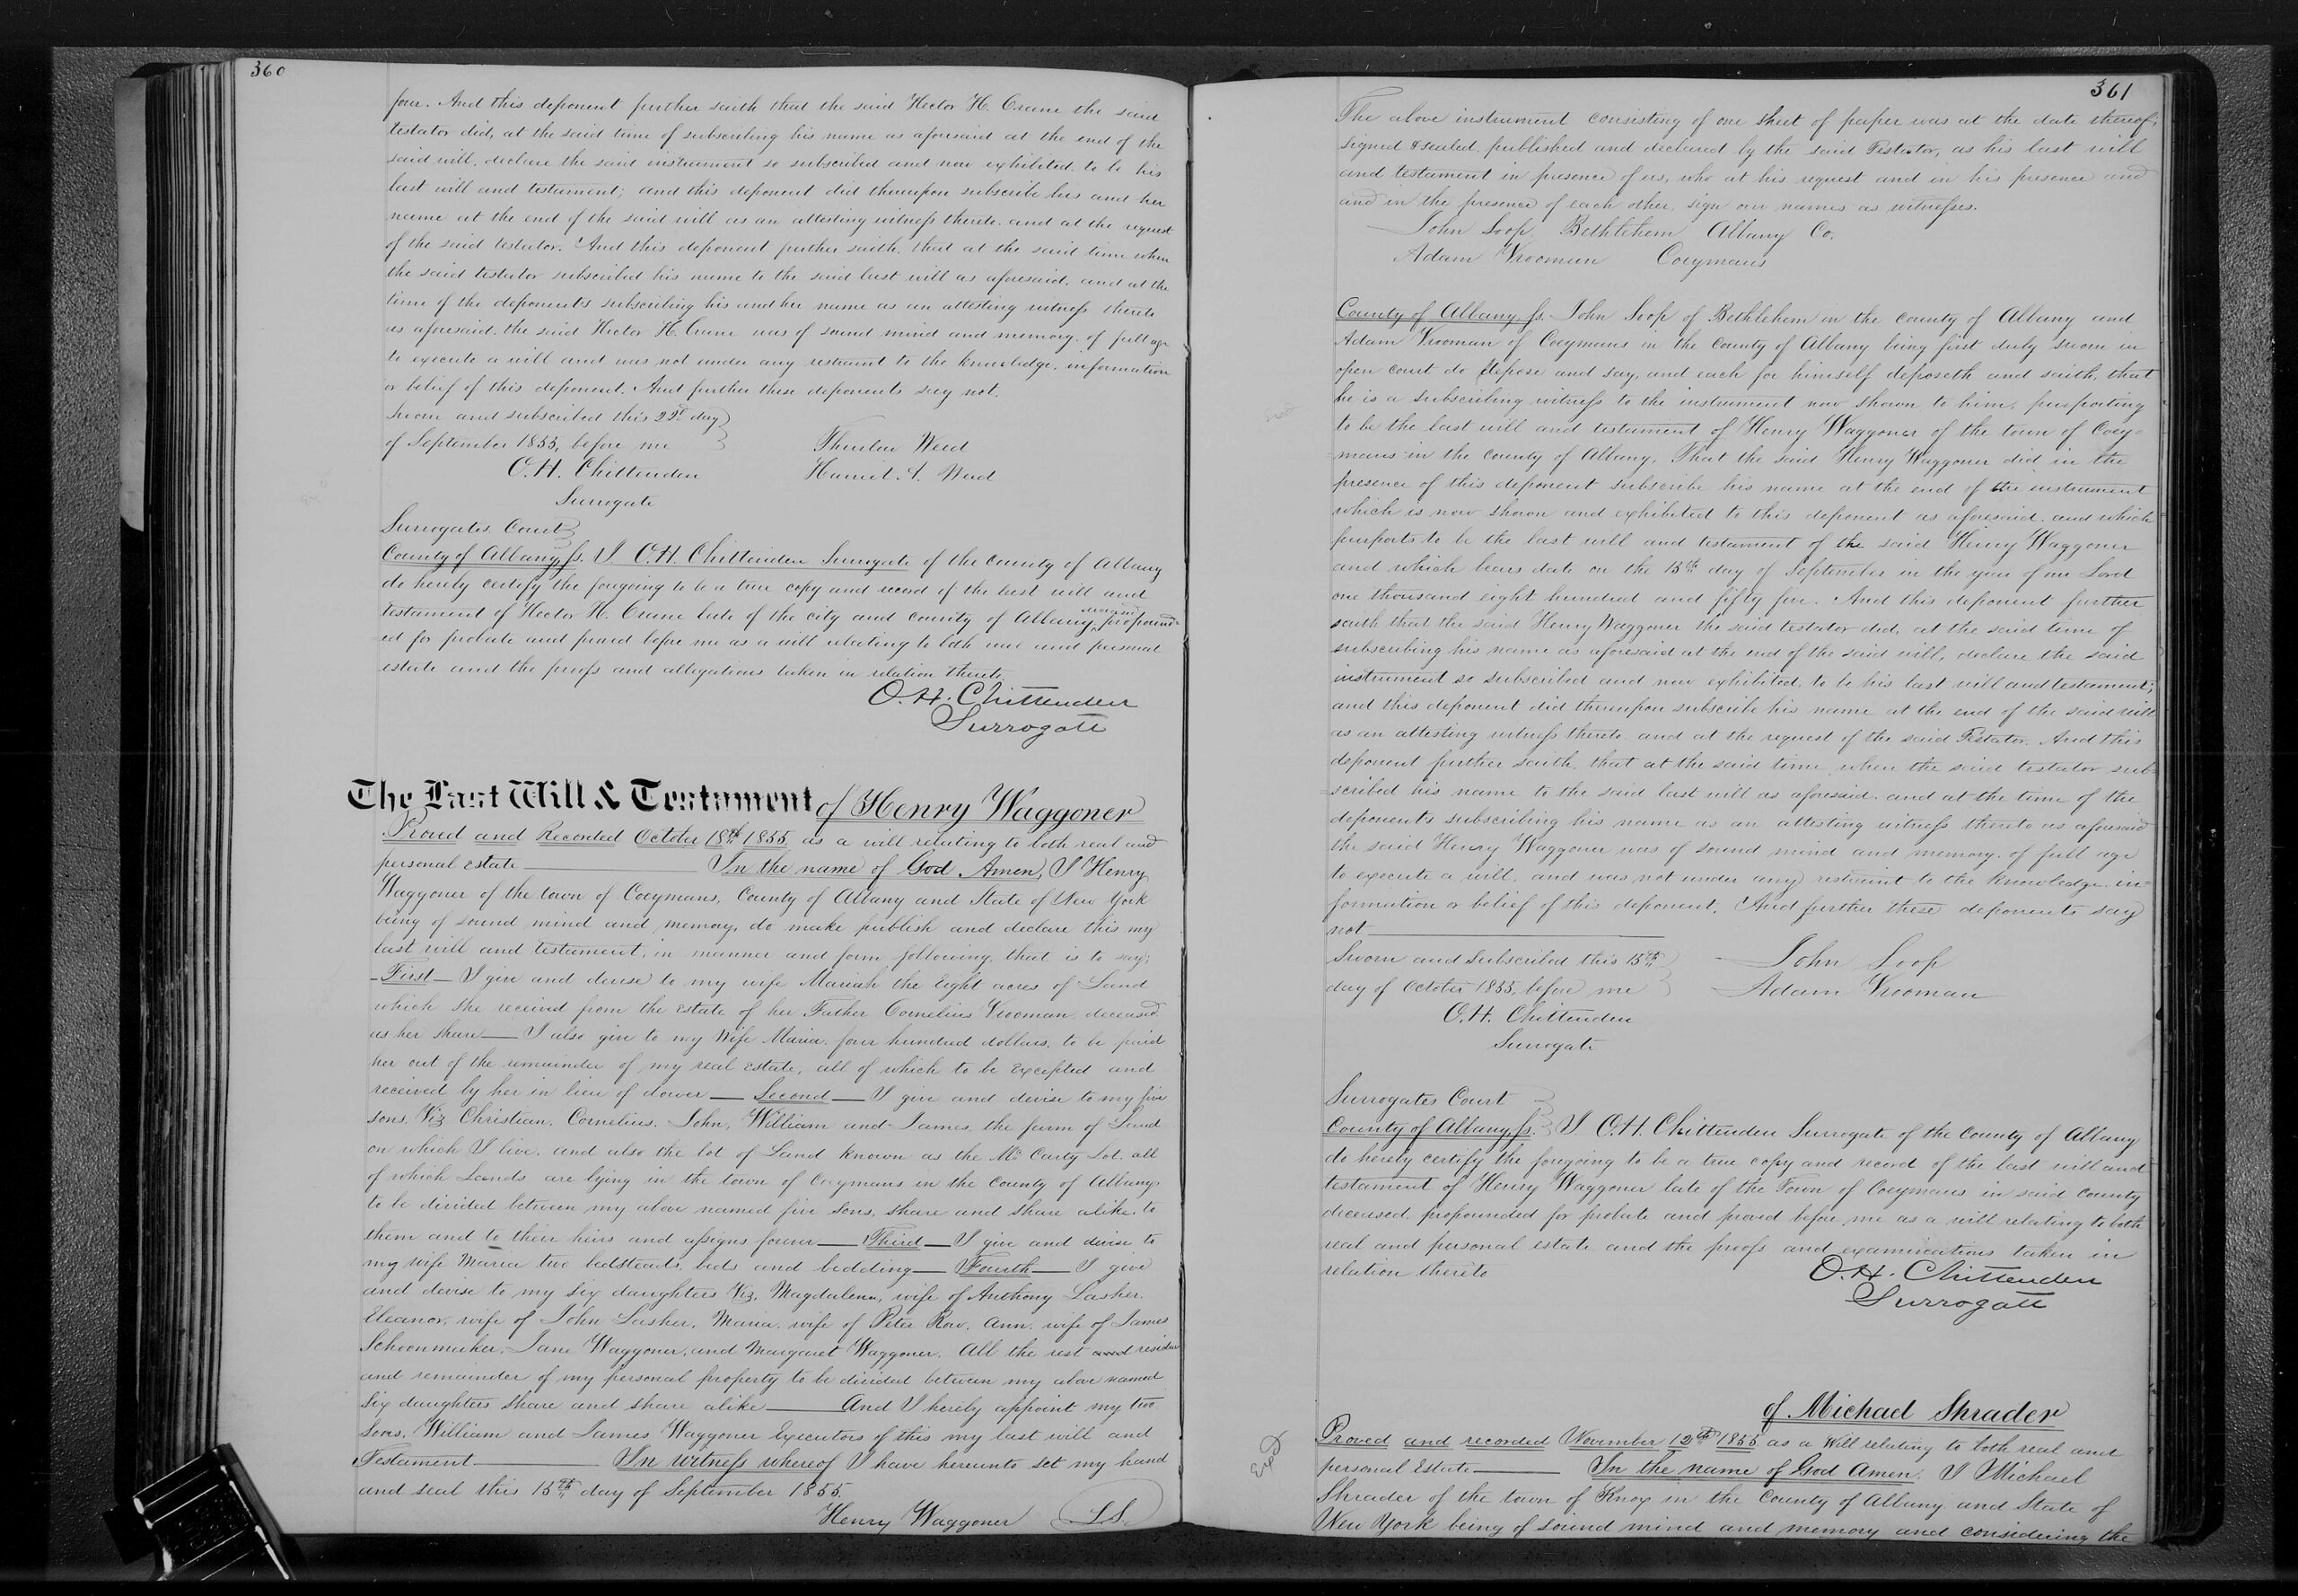 360
four. And this deponent further saith that the said Hector H. Crane the said
testator did, at the said time of subscribing his name as aforesaid at the end of the
said will, declare the said instrument so subscribed and now exhibited, to be his
last will and testament; and this deponent did thereupon subscribe his and her
name at the end of the said will as an attesting witness thereto, and at the request
of the said testator. And this deponent further saith, that at the said time when
the said testator subscribed his name to the said last will as aforesaid, and at the
time of the deponents subscribing his and her name as an attesting witness thereto
as aforesaid, the said Hector H. Crane was of sound mind and memory, of full age
to execute a will and was not under any restraint to the knowledge, information
or belief of this deponent. And further these deponents say not.
Sworn and subscribed this 22d day
of September 1855, before me Thurlow Weed
O. H. Chittenden Harriet A. Weed
Surrogate
Surrogates Court
County of Albany, ss. I O.H. Chittenden Surrogate of the County of Albany
do hereby certify the foregoing to be a true copy and record of the last will and
testament of Hector H. Crane late of the city and county of Albany, deceased propound-
ed for probate and proved before me as a will relating to both real and personal
estate and the proofs and allegations taken in relation thereto.
O. H. Chittenden
Surrogate
The Last Will & Testament of Henry Waggoner
Proved and Recorded October 18th 1855 as a will relating to both real and
personal Estate In the name of God Amen, I Henry
Waggoner of the town of Coeymans, County of Albany and State of New York
being of sound mind and memory, do make publish and declare this my
last will and testament, in manner and form following, that is to say;
First I give and devise to my wife Mariah the Eight acres of Land
which she received from the Estate of her Father Cornelius Vrooman deceased
as her share I also give to my Wife Maria four hundred dollars, to be paid
her out of the remainder of my real Estate, all of which to be Excepted and
received by her in lieu of dower Second I give and devise to my five
sons, Viz Christian, Cornelius, John, William and James the farm of Land
on which I live, and also the lot of Land known as the Mc Carty Lot, all
of which Lands are lying in the town of Coeymans in the County of Albany,
to be divided between my above named five sons, share and share alike, to
them and to their heirs and assigns forever Third I give and devise to
my wife Maria two bedsteads, beds and bedding Fourth I give
and devise to my six daughters Viz, Magdalena, wife of Anthony Lasher,
Eleanor, wife of John Lasher, Maria, wife of Peter Row, Ann, wife of James
Schoonmaker, Jane Waggoner, and Margaret Waggoner. All the rest and residue
and remainder of my personal property to be divided between my above named
six daughters share and share alike And I hereby appoint my two
sons, William and James Waggoner Executors of this my last will and
Testament In witness whereof I have hereunto set my hand
and seal this 15th day of September 1855
Henry Waggoner L.S.
361
The above instrument consisting of one sheet of paper was at the date thereof;
signed & sealed, published and declared by the said Testator, as his last will
and testament in presence of us, who at his request and in his presence and
and in the presence of each other, sign our names as witnesses.
John Soop, Bethlehem Albany Co.
Adam Vrooman Coeymans
County of Albany, ss. John Soop of Bethlehem in the county of Albany and
Adam Vrooman of Coeymans in the County of Albany being first duly sworn in
open court do depose and say, and each for himself deposeth and saith, that
he is a subscribing witness to the instrument now shown to him, purporting
to be the last will and testament of Henry Waggoner of the town of Coey-
mans in the County of Albany, That the said Henry Waggoner did in the
presence of this deponent subscribe his name at the end of the instrument
which is now shown and exhibited to this deponent as aforesaid, and which
purports to be the last will and testament of the said Henry Waggoner
and which bears date on the 15th day of September in the year of our Lord
one thousand eight hundred and fifty five. And this deponent further
saith that the said Henry Waggoner the said testator did, at the said time of
subscribing his name as aforesaid at the end of the said will, declare the said
instrument so subscribed and now exhibited, to be his last will and testament;
and this deponent did thereupon subscribe his name at the end of the said will
as an attesting witness thereto and at the request of the said Testator. And this
deponent further saith, that at the said time when the said testator sub-
scribed his name to the said last will as aforesaid, and at the time of the
deponents subscribing his name as an attesting witness thereto as aforesaid
the said Henry Waggoner was of sound mind and memory, of full age
to execute a will, and was not under any restraint to the knowledge, in-
formation or belief of this deponent. And further these deponents say
not
Sworn and subscribed this 15th John Soop
day of October 1855, before me Adam Vrooman
O.H. Chittenden
Surrogate
Surrogates Court
County of Albany, ss. I O.H. Chittenden Surrogate of the County of Albany
do hereby certify the foregoing to be a true copy and record of the last will and
testament of Henry Waggoner late of the Town of Coeymans in said County
deceased, propounded for probate and proved before me as a will relating to both
real and personal estate and the proofs and examinations taken in
relation thereto
O. H. Chittenden
Surrogate
of Michael Shrader
Proved and recorded November 12th 1855 as a Will relating to both real and
personal Estate In the name of God Amen. I Michael
Shrader of the town of Knox in the County of Albany and State of
New York being of sound mind and memory and considering the